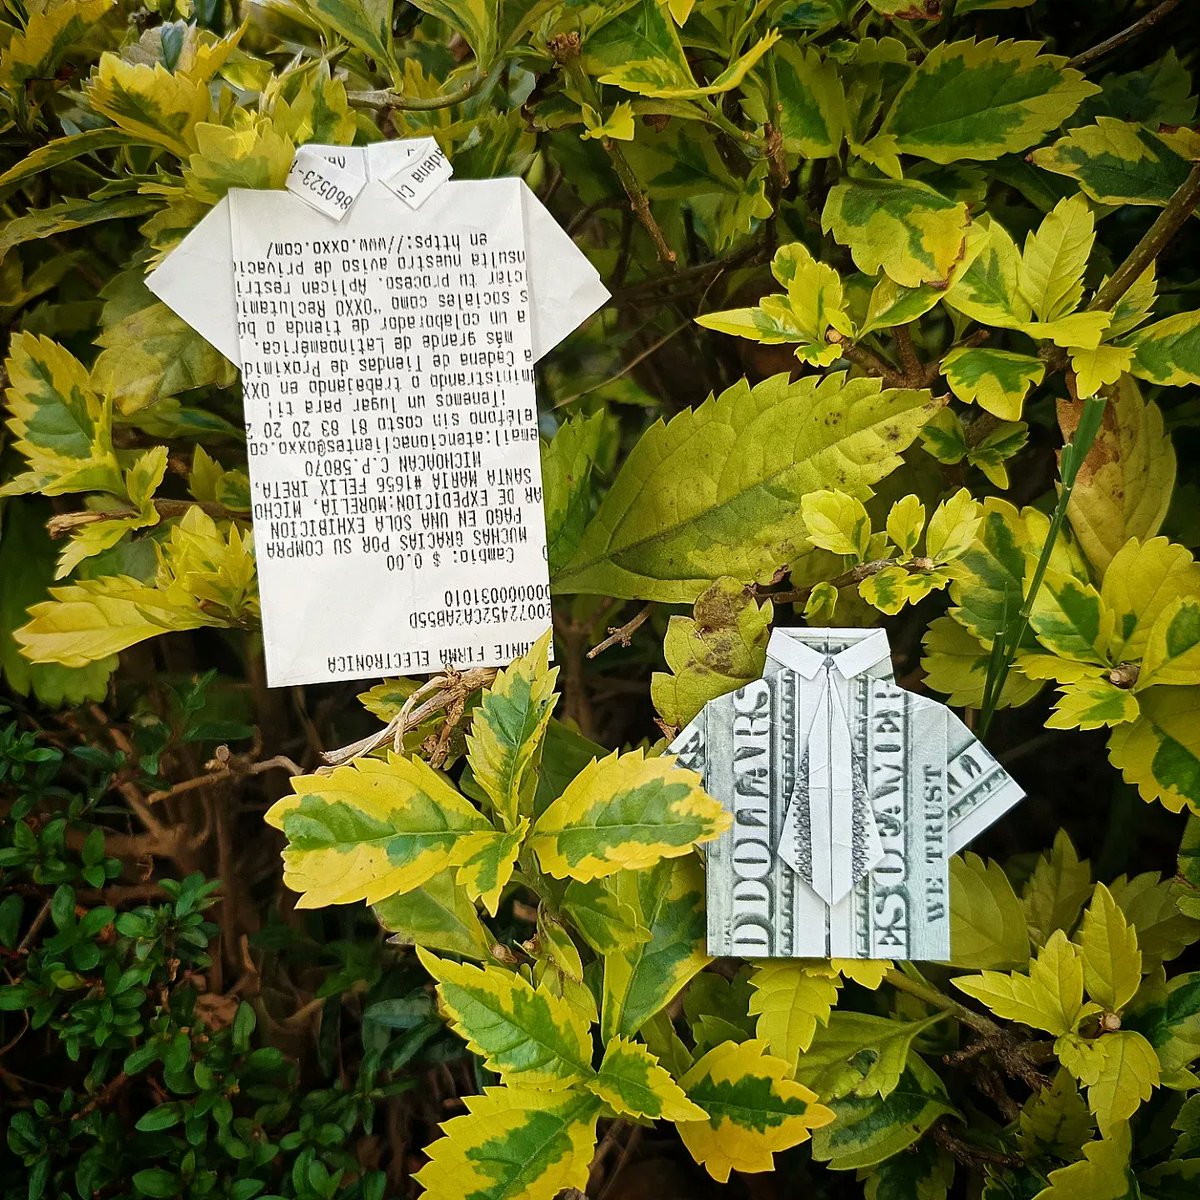 ANTE FIRMA ELECTRÓNICA
20072452CA2AB55D
00000031010
Cambio: $ 0.00
MUCHAS GRACIAS POR SU COMPRA
PAGO EN UNA SOLA EXHIBICION
AR DE EXPEDICION:MORELIA, MICHO
SANTA MARIA #1656 FELIX IRETA,
MICHOACAN C.P.58070
email:atencionaclientes@oxxo.co
eléfono sin costo 81 83 20 20 2
¡Tenemos un lugar para ti!
ministrando o trabajando en OXX
a Cadena de Tiendas de Proximid
más grande de Latinoamérica.
a un colaborador de tienda o bú
s sociales como "OXXO Reclutami
ciar tu proceso. Aplican restri
nsulta nuestro aviso de privaci
en https://www.oxxo.com/
860523-1
adena C
DDOLLARS
ESOFAMER
WE TRUST